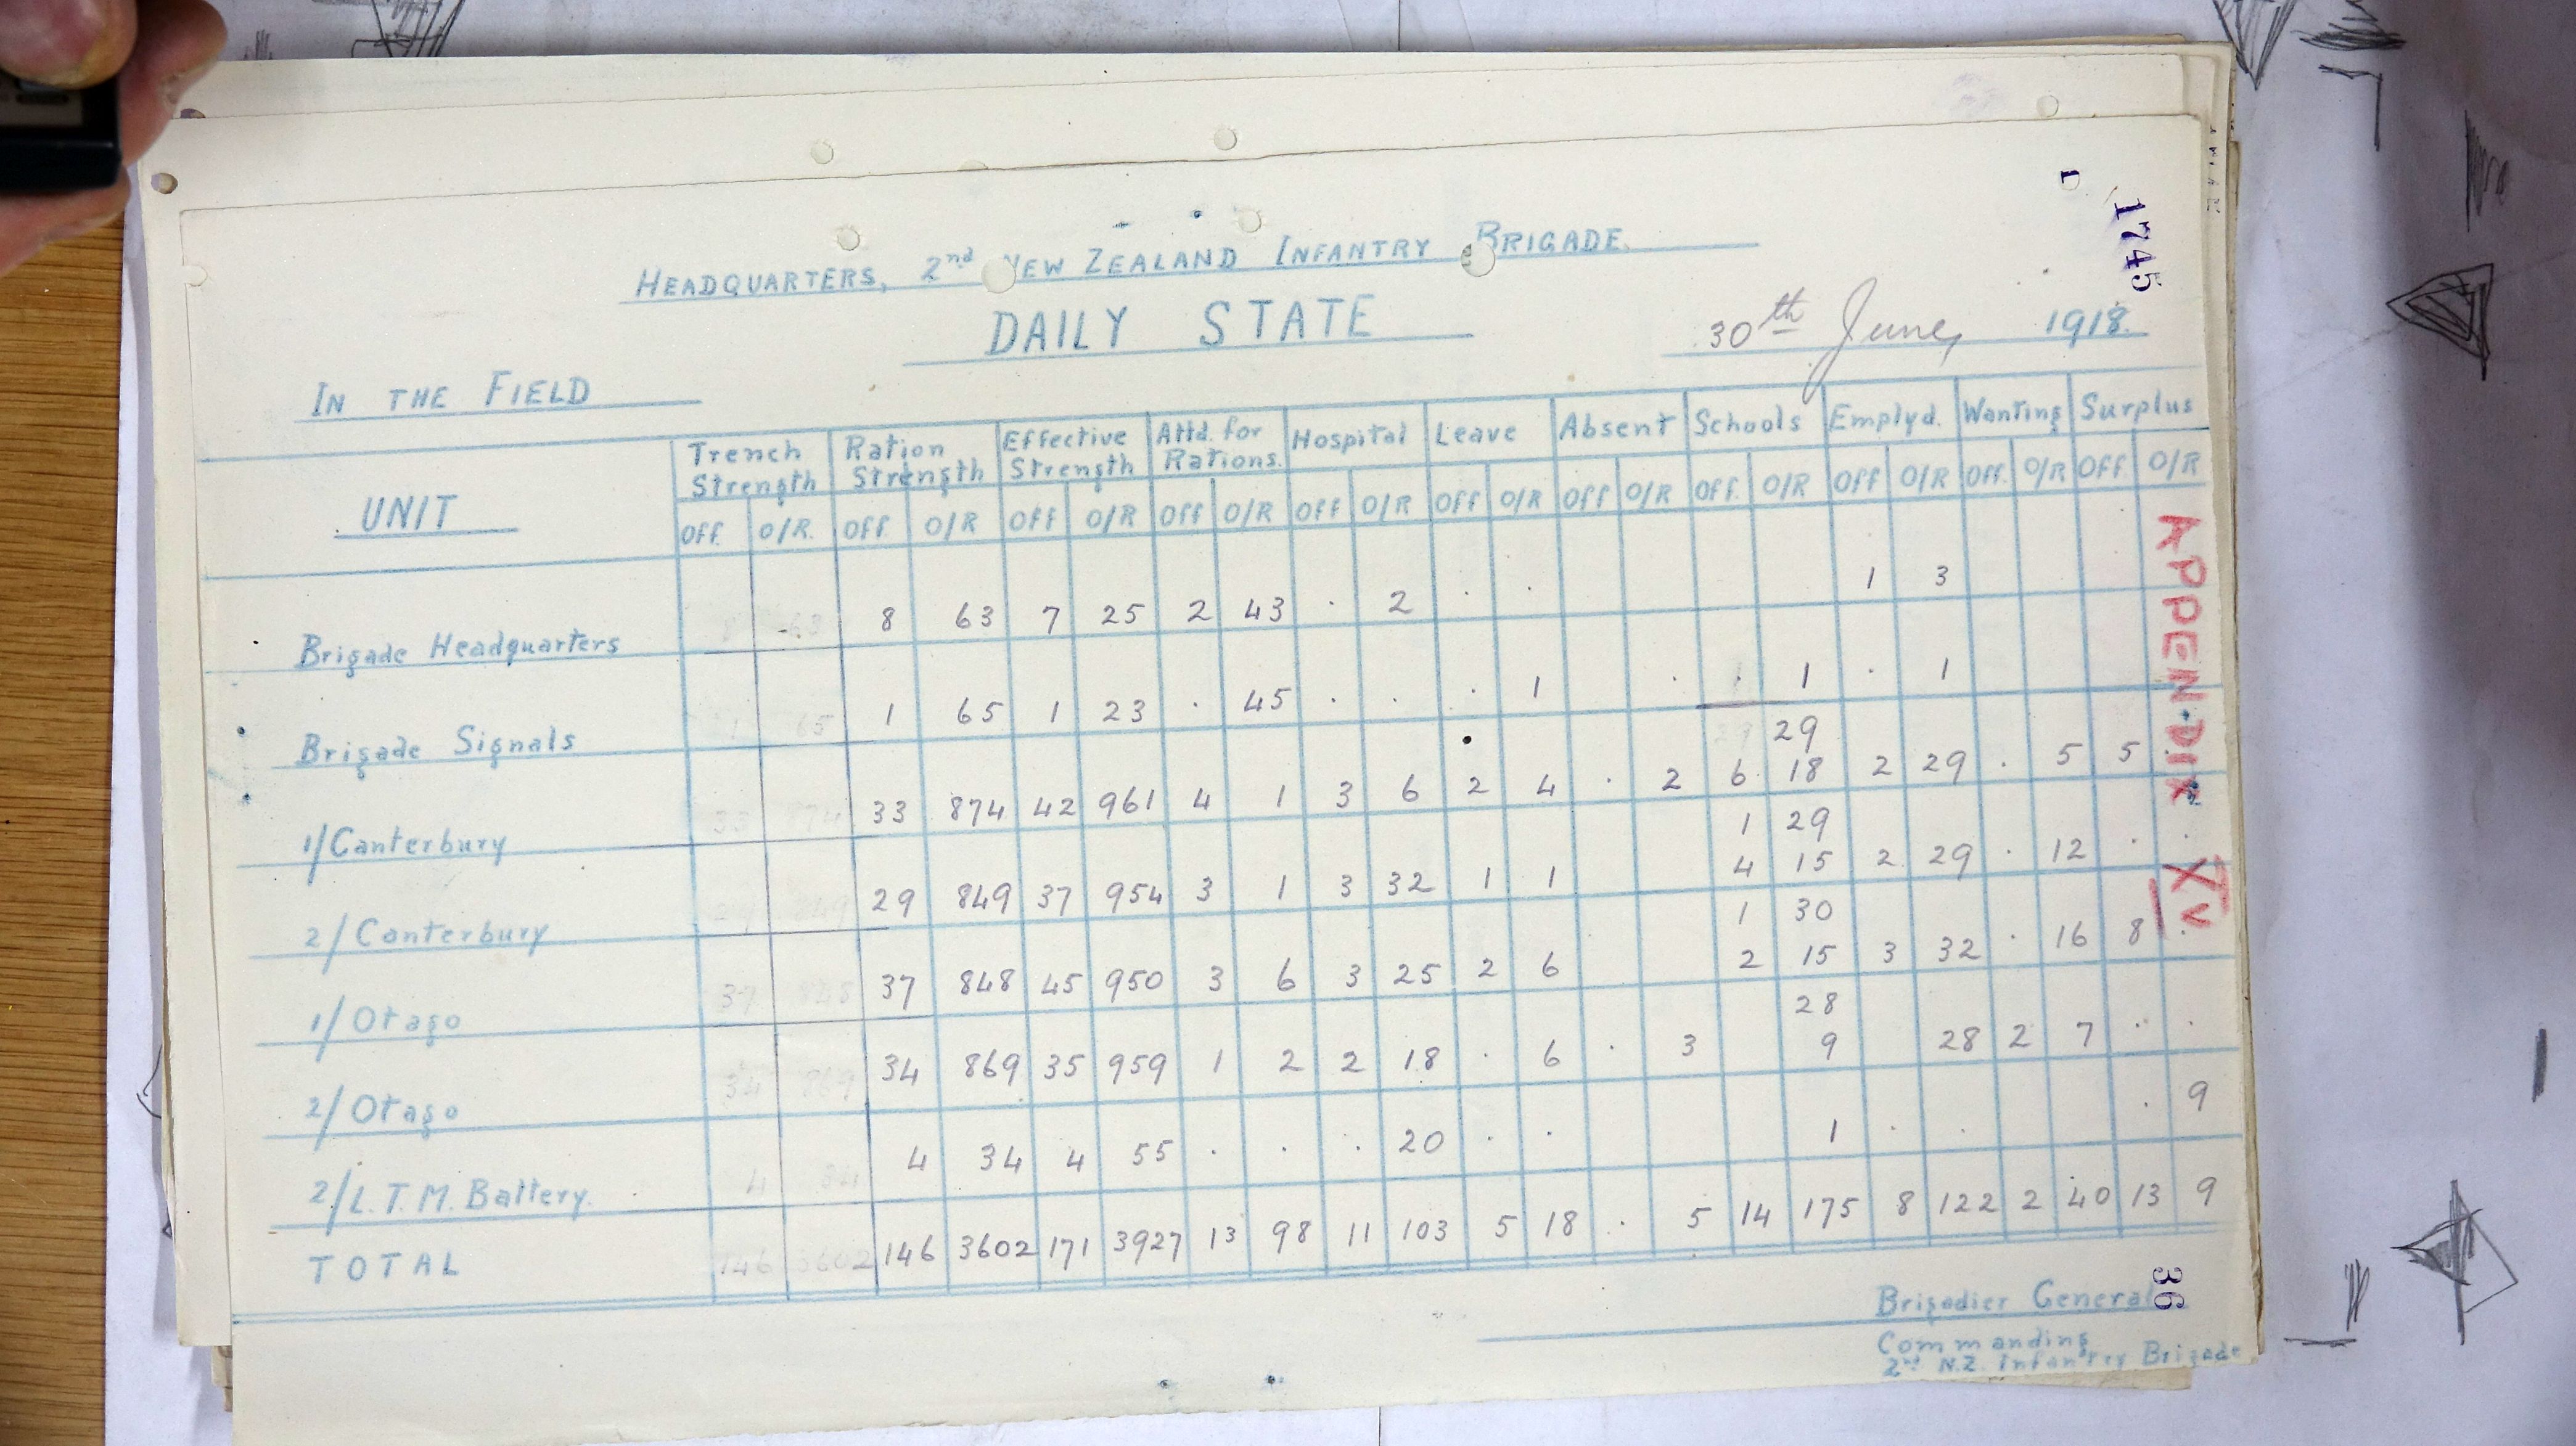 1745
HEADQUARTERS, 2nd NEW ZEALAND INFANTRY BRIGADE.
DAILY STATE
30th June, 1918.
IN THE FIELD
UNIT Trench Strength Ration Strength Effective Strength Attd. for Rations. Hospital Leave Absent Schools Emplyd. Wanting Surplus
Off. O/R. Off O/R Off O/R Off O/R Off O/R Off O/R Off O/R Off. O/R Off O/R Off. O/R Off. O/R
Brigade Headquarters 8 63 8 63 7 25 2 43 . 2 . . 1 3
Brigade Signals 1 65 1 65 1 23 . 45 . . . 1 . . 1 . 1
29 29
1/Canterbury 33 874 33 874 42 961 4 1 3 6 2 4 . 2 6 18 2 29 . 5 5 .
1 29
2/Canterbury 29 849 29 849 37 954 3 1 3 32 1 1 4 15 2 29 . 12 . .
1 30
1/Otago 37 848 37 848 45 950 3 6 3 25 2 6 2 15 3 32 . 16 8 .
28
2/Otago 34 869 34 869 35 959 1 2 2 18 . 6 . 3 9 28 2 7 . .
2/L.T.M. Battery. 4 34 4 34 4 55 . . . 20 . . 1 . . . 9
TOTAL 146 3602 146 3602 171 3927 13 98 11 103 5 18 . 5 14 175 8 122 2 40 13 9
APPENDIX XV.
36
Brigadier General
Commanding
2nd N.Z. Infantry Brigade